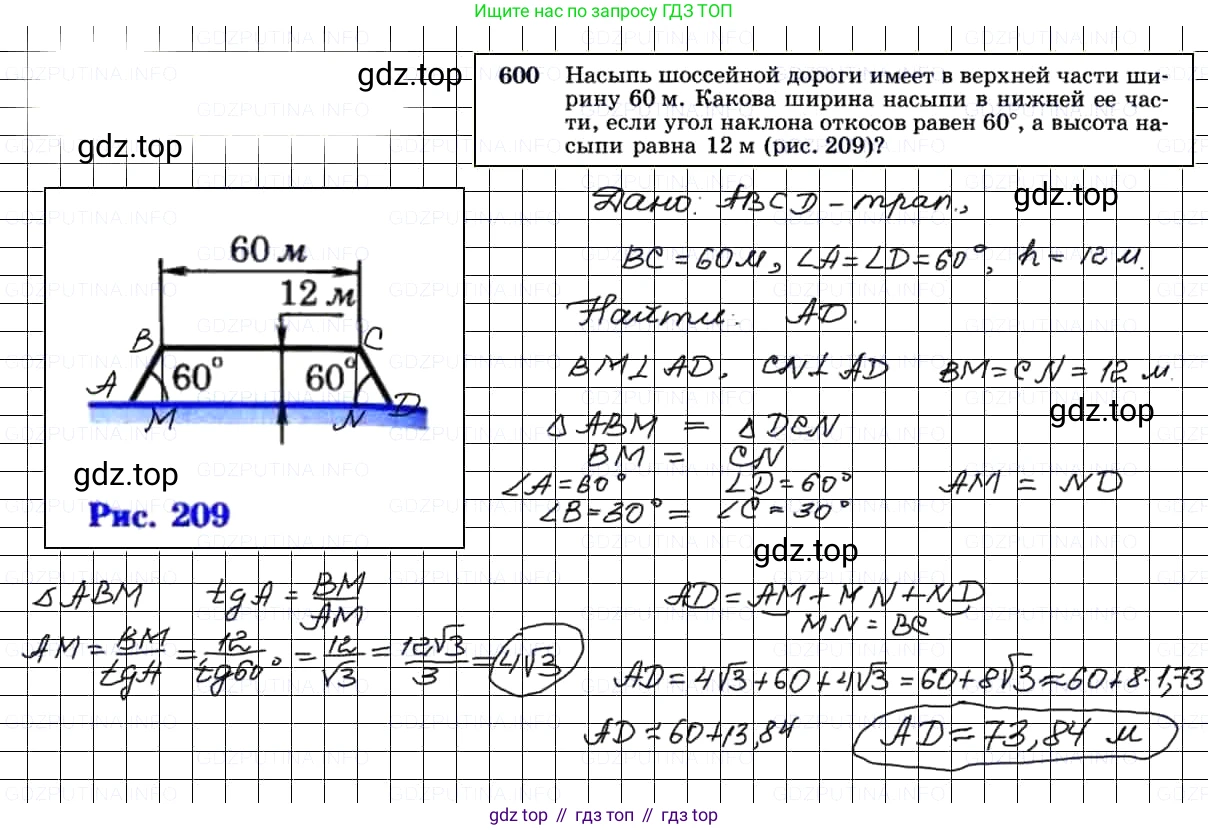 Ищите нас по запросу ГДЗ ТОП
gdz.top
600 Насыпь шоссейной дороги имеет в верхней части ши-
рину 60 м. Какова ширина насыпи в нижней ее час-
ти, если угол наклона откосов равен 60°, а высота на-
сыпи равна 12 м (рис. 209)?
gdz.top
Дано: ABCD – трап.,
gdz.top
BC = 60 м, ∠A = ∠D = 60°, h = 12 м.
Найти: AD.
60 м
12 м
B C
60° 60°
A M N D
gdz.top
Рис. 209
BM ⊥ AD, CN ⊥ AD BM = CN = 12 м.
gdz.top
△ ABM = △ DCN
BM = CN
∠A = 60° ∠D = 60° AM = ND
∠B = 30° = ∠C = 30°
gdz.top
△ ABM tg A = BM/AM
AM = BM/tgA = 12/tg60° = 12/√3 = 12√3/3 = 4√3
AD = AM + MN + ND
MN = BC
AD = 4√3 + 60 + 4√3 = 60 + 8√3 ≈ 60 + 8·1,73
AD ≈ 60 + 13,84 AD = 73,84 м
gdz top // гдз топ // gdz top